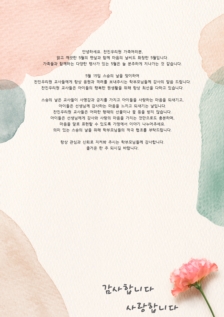 안녕하세요. 전인유리원 가족여러분.
맑고 깨끗한 5월의 햇살과 함께 마음의 날씨도 화창한 5월입니다.
가족들과 함께하는 다양한 행사가 있는 5월은 늘 분주하게 지나가는 것 같습니다.
5월 15일 스승의 날을 맞이하여
전인유리원 교사들에게 항상 응원과 격려를 보내주시는 학부모님들께 감사의 말씀 드립니다
전인유리원 교사들은 아이들의 행복한 원생활을 위해 항상 최선을 다하고 있습니다.
스승의 날은 교사들이 사명감과 긍지를 가지고 아이들을 사랑하는 마음을 되새기고,
아이들은 선생님께 감사하는 마음을 느끼고 되새기는 날입니다.
전인유리원 교사들은 어떠한 형태의 선물이나 꽃 등을 받지 않습니다.
아이들은 선생님에게 감사와 사랑의 마음을 가지는 것만으로도 충분하며,
마음을 말로 표현할 수 있도록 가정에서 이야기 나누어주세요.
의미 있는 스승의 날을 위해 학부모님들의 적극 협조를 부탁드립니다.
항상 관심과 신뢰로 지켜봐 주시는 학부모님께 감사합니다.
즐거운 한 주 되시길 바랍니다.
감사합니다
사랑합니다